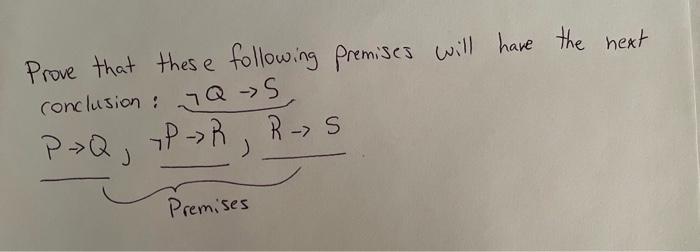 Prove that these following premises will have the next
conclusion : ¬Q → S
P→Q, ¬P→R, R→ S
Premises